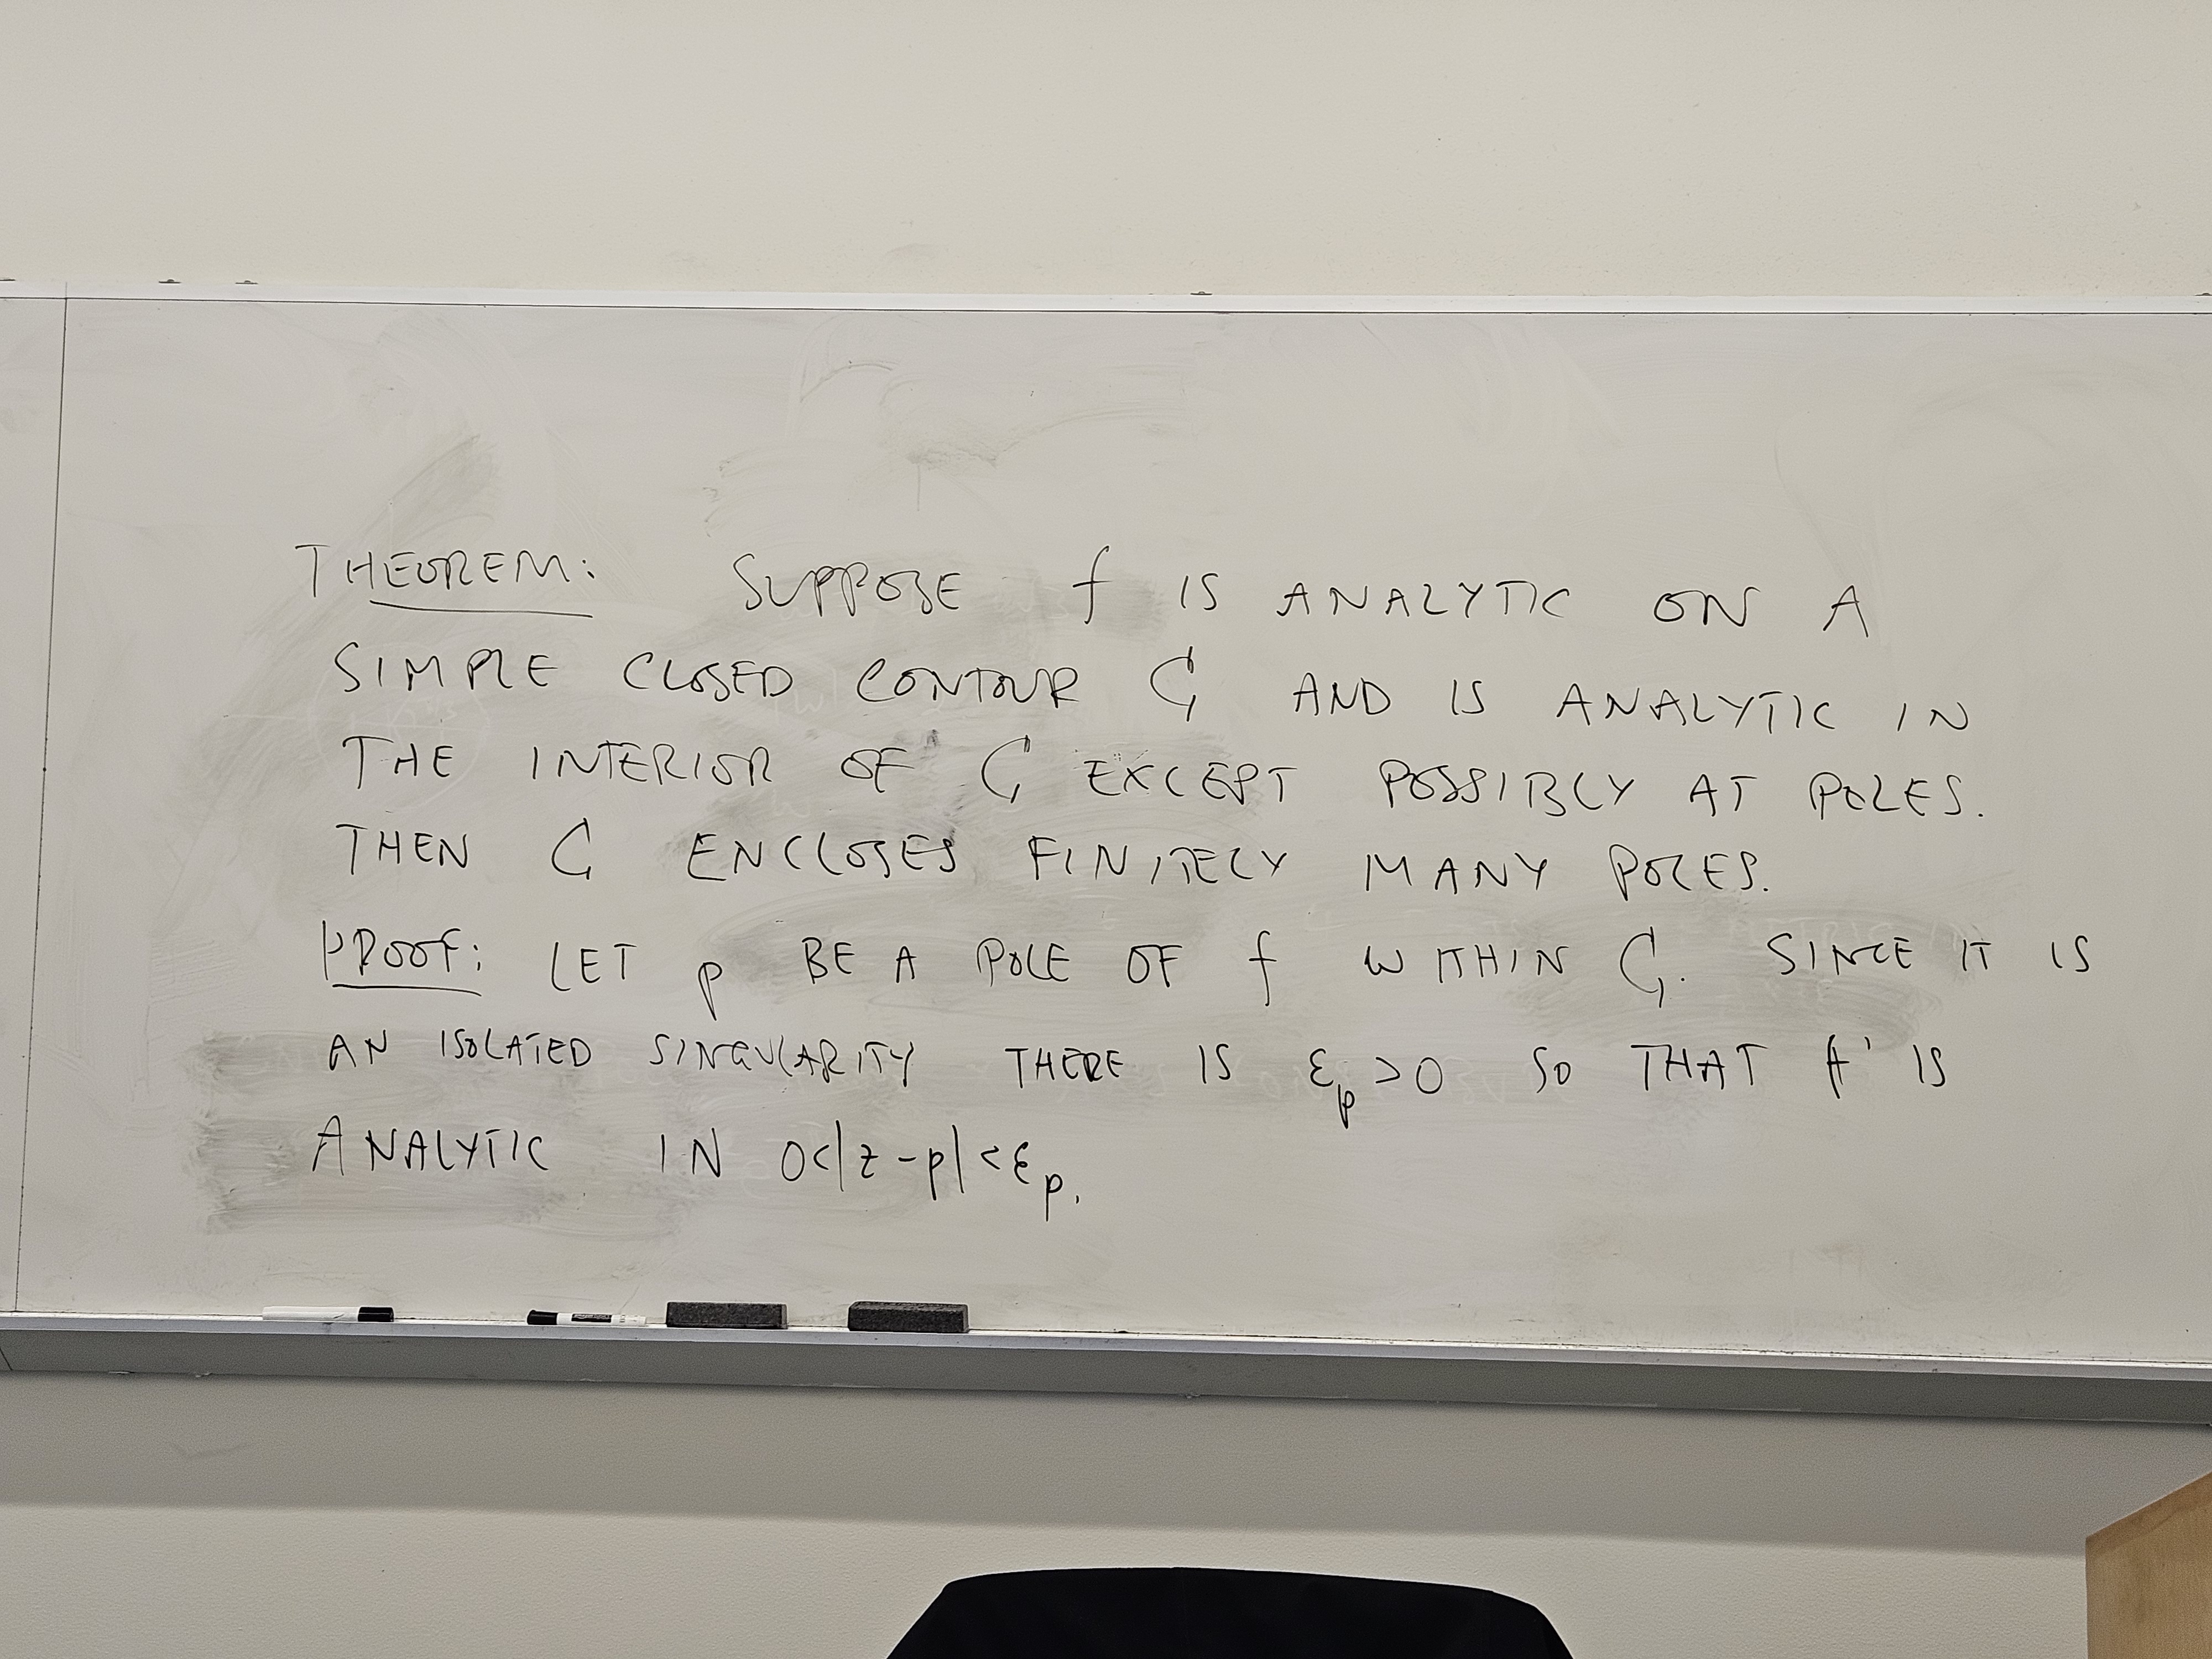 THEOREM: SUPPOSE f IS ANALYTIC ON A
SIMPLE CLOSED CONTOUR C, AND IS ANALYTIC IN
THE INTERIOR OF C EXCEPT POSSIBLY AT POLES.
THEN C ENCLOSES FINITELY MANY POLES.
PROOF: LET p BE A POLE OF f WITHIN C. SINCE IT IS
AN ISOLATED SINGULARITY THERE IS ε_p > 0 SO THAT f IS
ANALYTIC IN 0<|z-p|<ε_p.